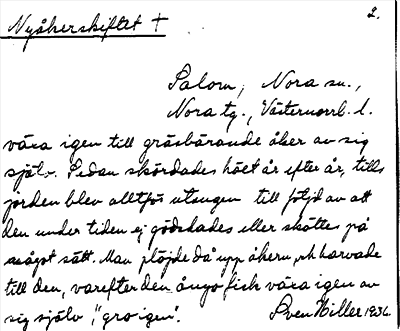 Nyåkerskiftet + 2.
Salom, Nora sn.,
Nora tg., Västernorrl. l.
växa igen till gräsbärande åker av sig
själv. Sedan skördades höet år efter år, tills
jorden blev alltför utsugen till följd av att
den under tiden ej gödslades eller sköttes på
något sätt. Man plöjde då upp åkern, och harvade
till den, varefter den ånyo fick växa igen av
sig själv, "gro igen". Sven Hiller 1936.